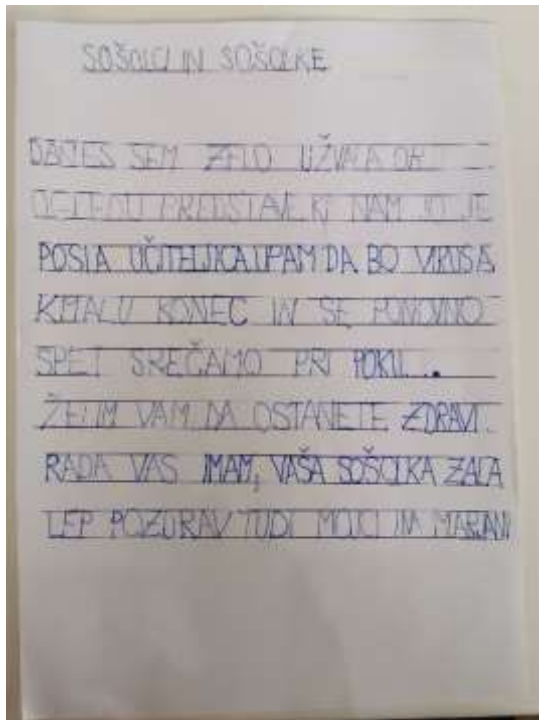 SOŠOLCI IN SOŠOLKE
DANES SEM ZELO UŽIVALA OB
OGLEDU PREDSTAVE KI NAM JO JE
POSLA UČITELJICA UPAM DA BO VIRUSA
KMALU KONEC IN SE PONOVNO
SPET SREČAMO PRI POKU..
ŽELIM VAM DA OSTANETE ZDRAVI.
RADA VAS IMAM, VAŠA SOŠOLKA ZALA
LEP POZDRAV TUDI MOJCI IN